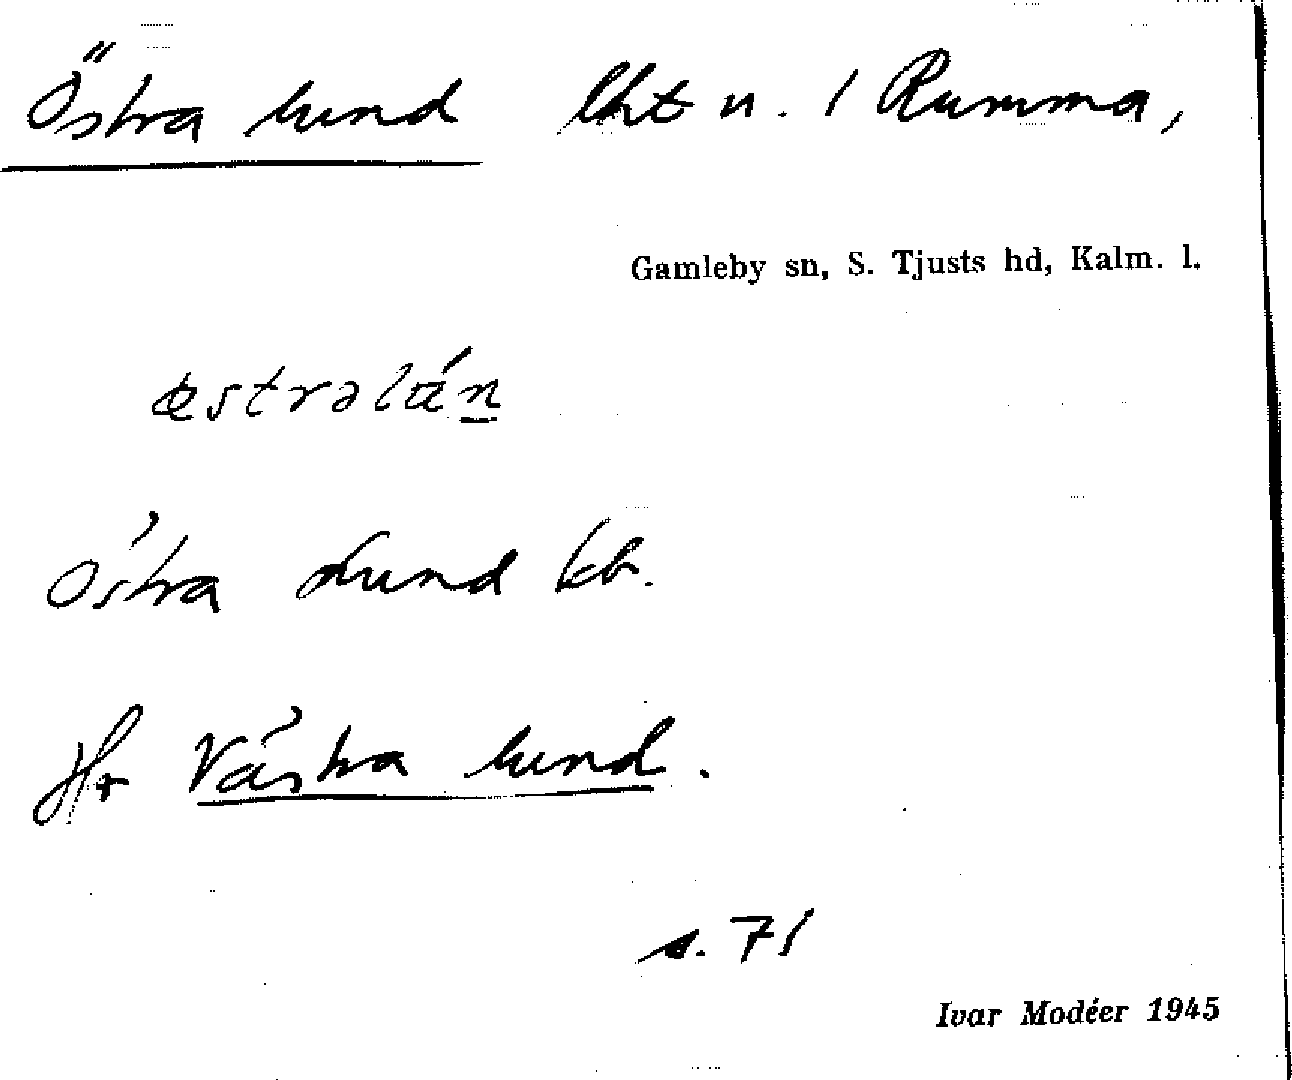 Östra lund lht u. / Rumma,
Gamleby sn, S. Tjusts hd, Kalm. l.
Östra Lund kb.
Jfr Västra lund.
s. 71
Ivar Modéer 1945